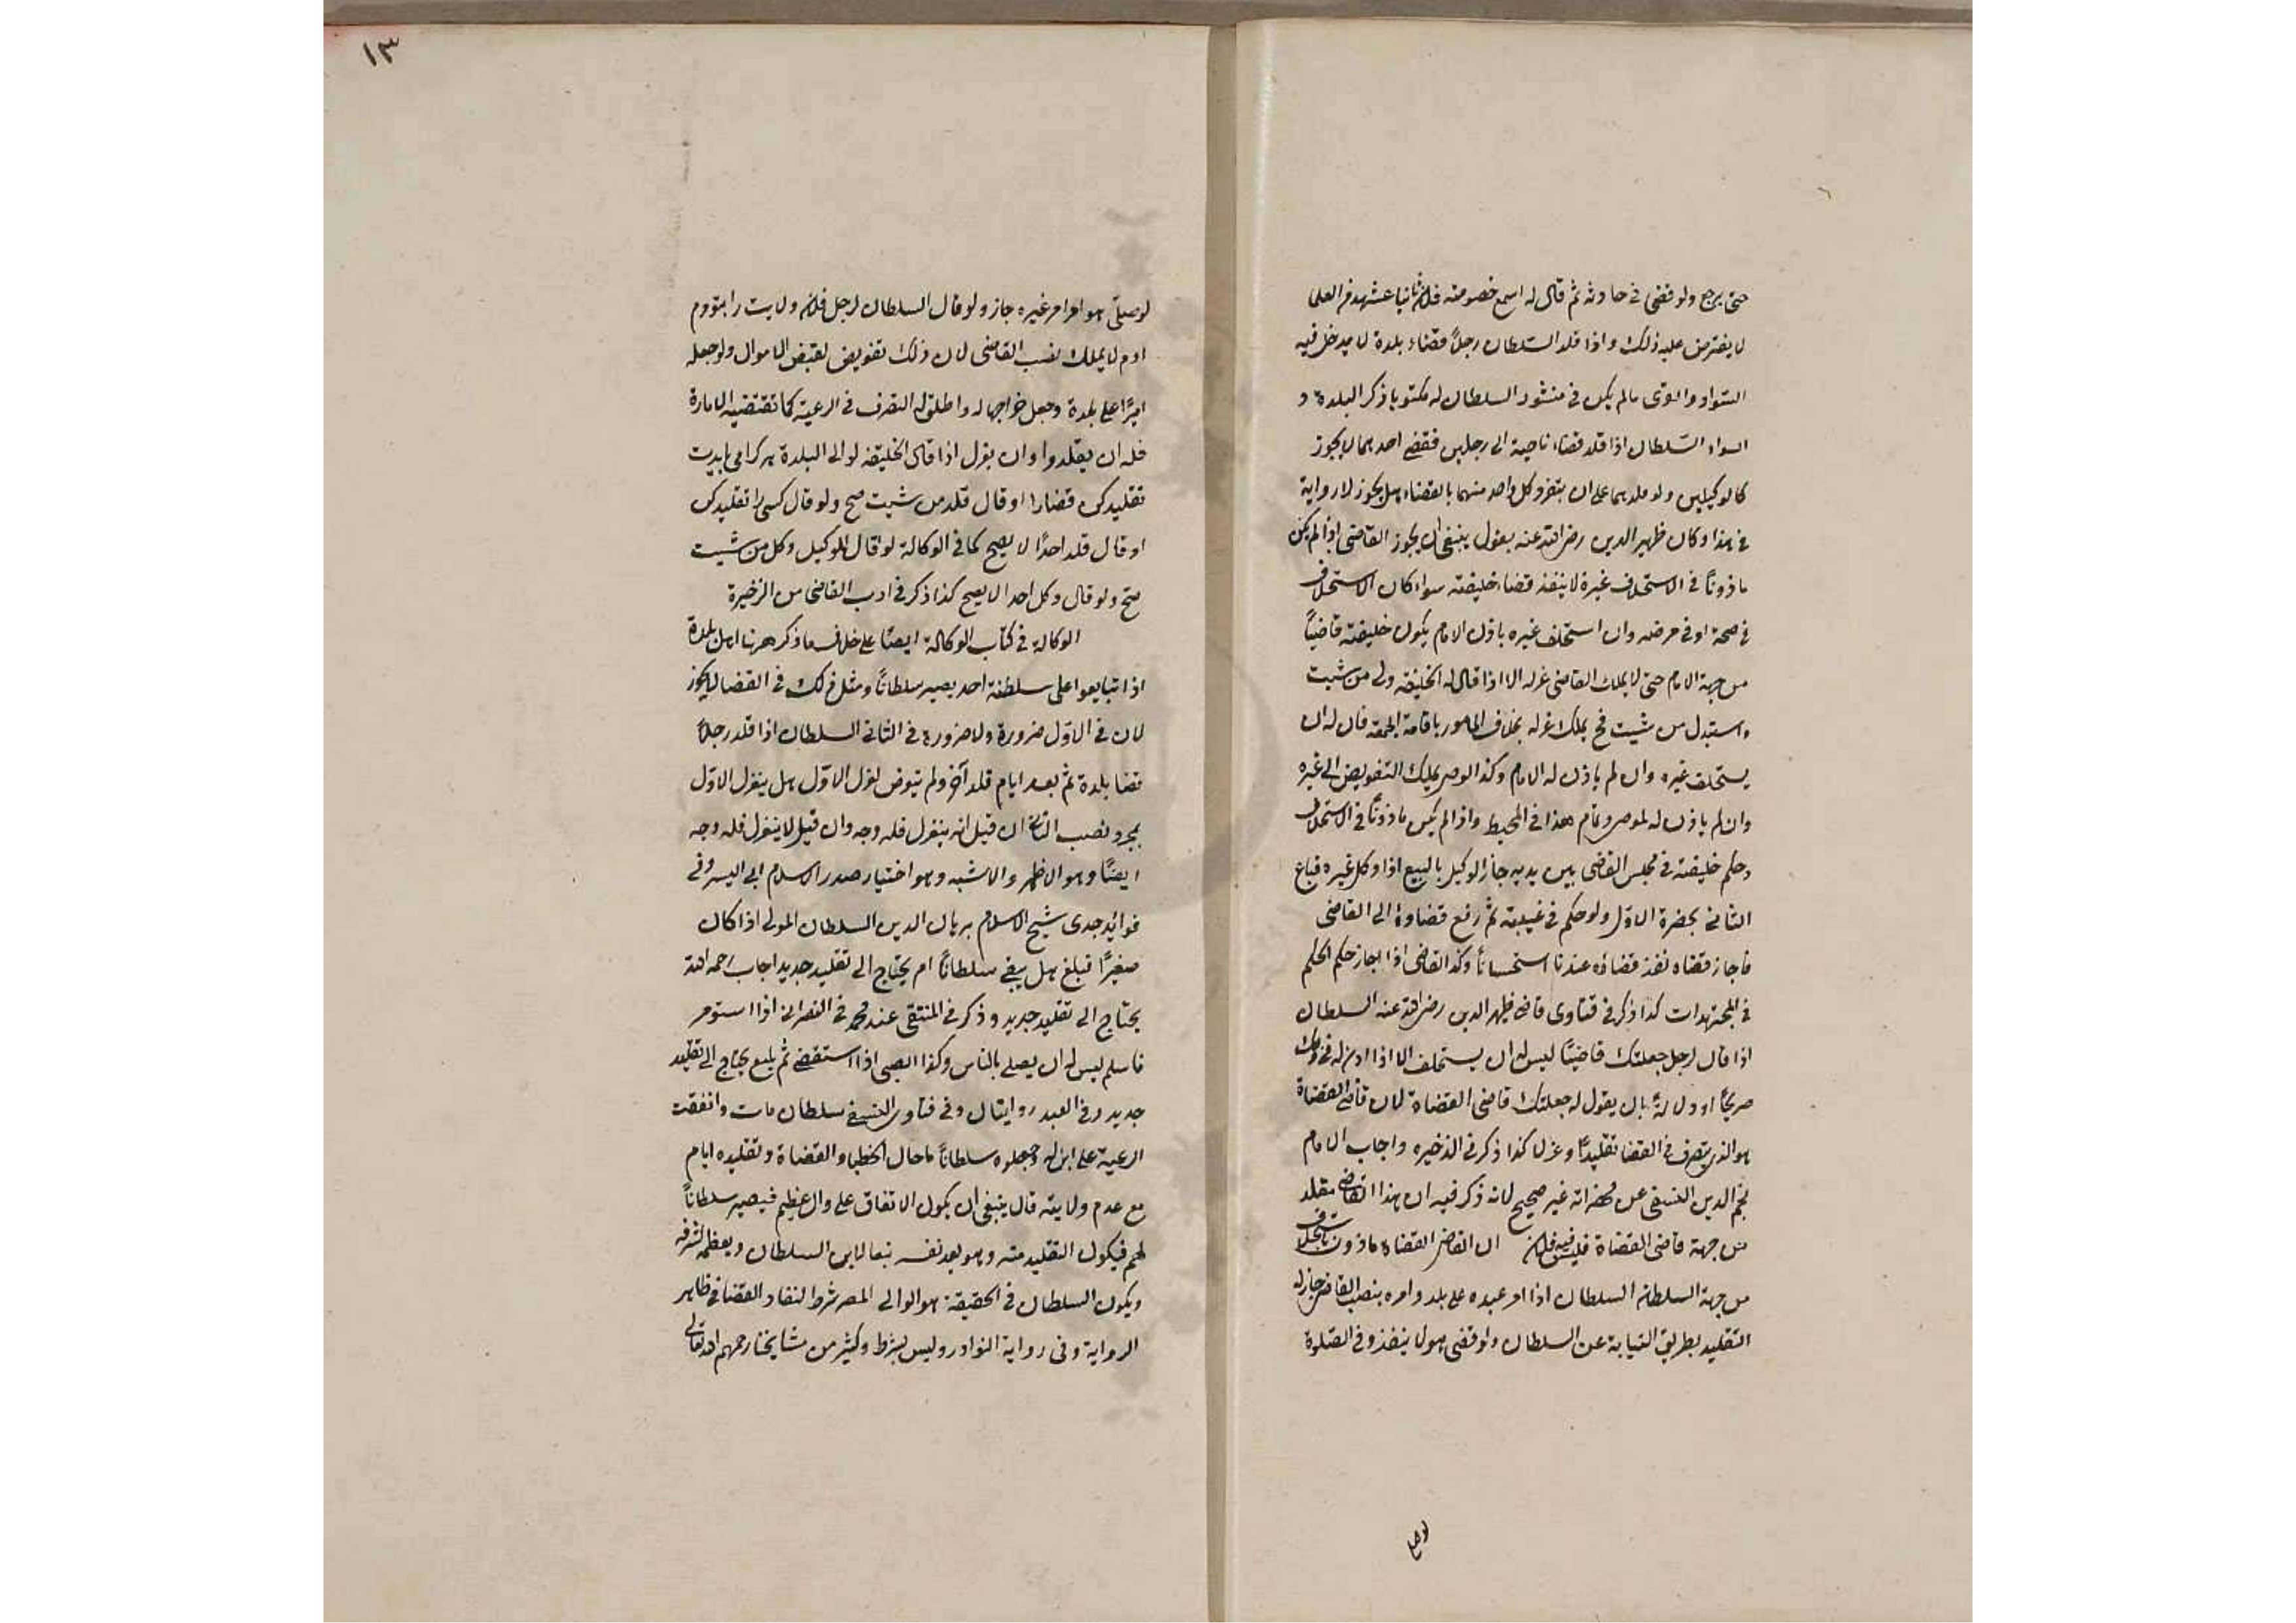 حتى يرجع ولو قضى في حادثه ثم قال له اسمع خصومته فلان ثانيا عشهد فر العلما
لا يفترض عليه ذلك واذا قلد السلطان رجلاً قضاء بلدة لا يدخل فيه
السواد والقرى مالم يكن في منشور السلطان له مكتوبا ذكر البلدة و
السواد السلطان اذا قلد قضاء ناحية الى رجلين فقضى احدهما لا يجوز
كالوكيلين ولو قلدهما على ان يتفرد كل واحد منهما بالقضاء هل يجوز لا رواية
في هذا وكان ظهير الدين رضى الله عنه يقول ينبغى ان يجوز القاضى اذا لم يكن
ماذوناً في الاستخلاف غيره لا ينفذ قضاء خليفته سواء كان الاستخلاف
في صحة او في مرضه وان استخلف غيره باذن الامام يكون خليفته قاضياً
من جهة الامام حتى لا يملك القاضى عزله الا اذا قال له الخليفه ولى من شيت
واستبدل من شيت فح يملك عزله بخلاف المامور باقامة الجمعه فان له ان
يستخلف غيره وان لم ياذن له الامام وكذا الوصى يملك التفويض الى غيره
وان لم ياذن له الموصى وتمام هذا في المحيط واذا لم يكن ماذوناً في الاستخلاف
وحكم خليفته في مجلس القاضى بين يديه جاز الوكيل بالبيع اذا وكل غيره فباع
الثانى بحضرة الاول ولو حكم في غيبته ثم رفع قضاوه الى القاضى
فاجاز قضاه نفذ قضاؤه عندنا استحساناً وكذا القاضى اذا اجاز حكم الحكم
في المجتهدات كذا ذكر في فتاوى قاضى ظهير الدين رضى الله عنه السلطان
اذا قال لرجل جعلتك قاضيًا ليس له ان يستخلف الا اذا اذن له في ذلك
صريحًا او دلالةً بان يقول له جعلتك قاضى القضاة لان قاضى القضاة
هو الذى يتصرف في القضا تقليدًا وعزلا كذا ذكر في الذخيره واجاب الامام
نجم الدين النسفى عن انه غير صحيح لانه ذكر فيه ان هذا القاضى مقلد
من جهة قاضى القضاة فليس فيه ان القاضى القضاة ماذون باستخلاف
من جهة السلطانه السلطان اذا امر عبده على بلد وامره بنصب القاضى جاز له
التقليد بطريق النيابة عن السلطان ولو قضى هو لا ينفذ وفي الصلوة
لوصلى
١٣
لو صلى هو او امر غيره جاز ولو قال السلطان لرجل فلان ولايت را بتو دم
ادم لا يملك نصب القاضى لان ذلك تفويض لقبض الاموال ولو جعله
اميرًا على بلدة وجعل خراجها له واطلق له التصرف في الرعية كما تقتضيه الامارة
فله ان يقلد وان يعزل اذا قال الخليفه لوالى البلدة هركرا مى بايدت
تقليد كن قضا را او قال قلد من شيت صح ولو قال كسى را تقليد كن
او قال قلد احدًا لا يصح كما في الوكالة لو قال للوكيل وكل من شيت
صح ولو قال وكل احدا لا يصح كذا ذكر في ادب القاضى من الذخيرة
الوكالة في كتاب الوكالة ايضًا على خلاف ما ذكر ههنا اهل بلدة
اذا تبايعوا على سلطنة احد يصير سلطاناً ومثل ذلك في القضا لا يجوز
لان في الاول ضرورة ولا ضرورة في الثانى السلطان اذا قلد رجلاً
قضا بلدة ثم بعد ايام قلد آخر ولم يتعرض لعزل الاول هل ينعزل الاول
بمجرد نصب الثانى ان قيل انه ينعزل فله وجه وان قيل لا ينعزل فله وجه
ايضًا وهو الاظهر والاشبه وهو اختيار صدر الاسلام ابى اليسر وفى
فوائد جدى شيخ الاسلام برهان الدين السلطان المولى اذا كان
صغيرًا فبلغ هل يبقى سلطاناً ام يحتاج الى تقليد جديد اجاب رحمه الله
يحتاج الى تقليد جديد وذكر في المنتقى عند محمد في النصرانى اذا استومر
فاسلم ليس له ان يصلى بالناس وكذا الصبى اذا استقضى ثم بلغ يحتاج الى تقليد
جديد وفى العبد روايتان وفى فتاوى النسفى سلطان مات واتفقت
الرعية على ابن له وجعلوه سلطاناً ما حال الخطبا والقضاة وتقليده ايام
مع عدم ولايته قال ينبغى ان يكون الاتفاق على وال عظيم فيصير سلطاناً
لهم فيكون التقليد منه وهو يعد نفسه تبعا لابن السلطان ويعظمه لشرفه
ويكون السلطان في الحقيقة هو الوالى المصر شرط لنفاد القضا في ظاهر
الرواية وفى رواية النوادر وليس بشرط وكثير من مشايخنا رحمهم الله تعالى